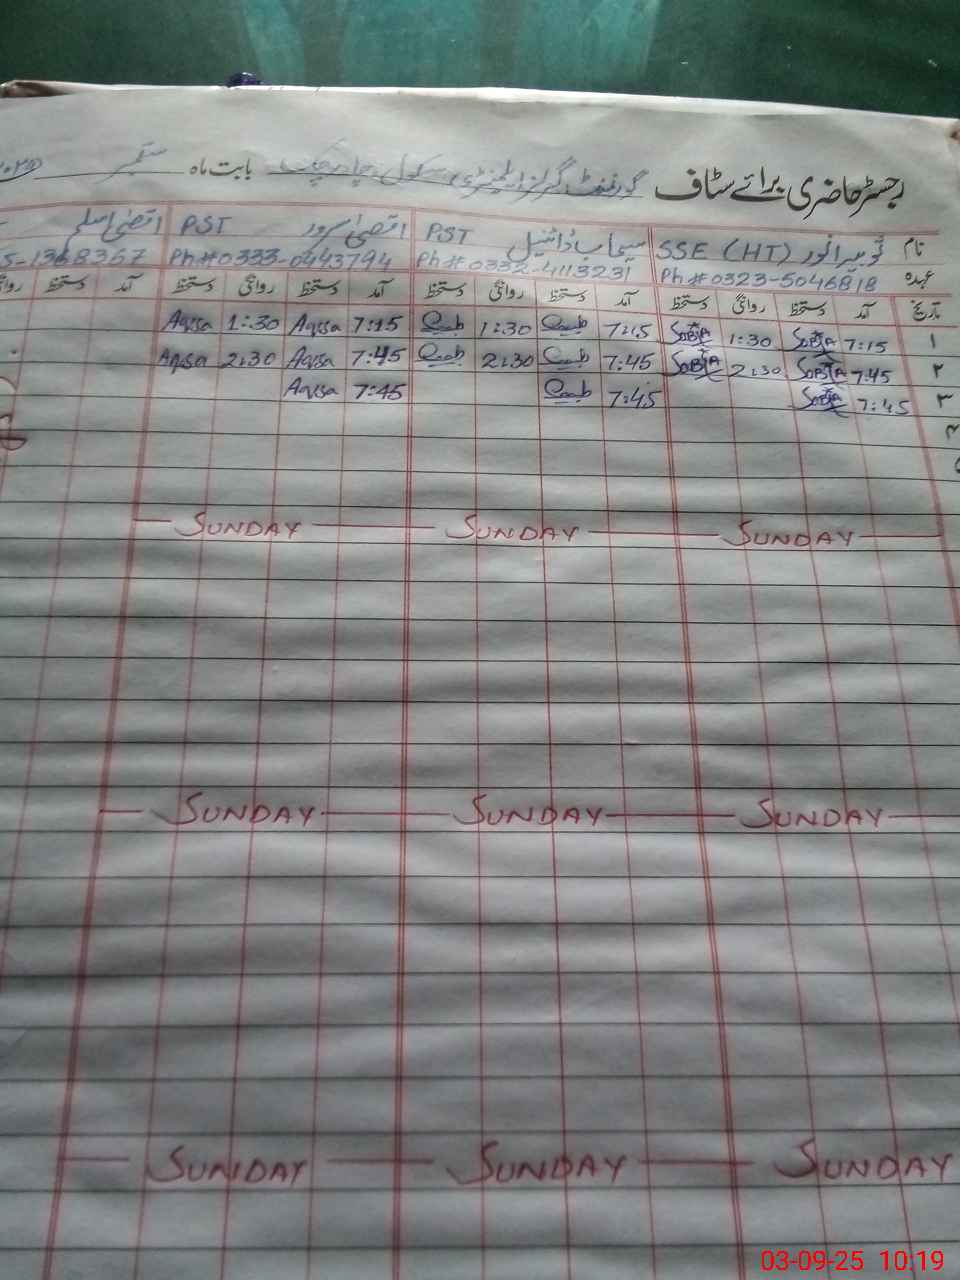 رجسٹر حاضری برائے سٹاف گورنمنٹ گرلز ایلیمنٹری سکول بابت ماہ ستمبر
نام ثوبیہ انور SSE (HT) سیماب ڈانیل PST اقصیٰ سرور PST اقصیٰ اسلم
عہدہ Ph#0323-5046818 Ph#0332-4113231 Ph#0333-0443794 5-1368367
تاریخ آمد دستخط روانگی دستخط آمد دستخط روانگی دستخط آمد دستخط روانگی دستخط آمد دستخط
۱ 7:15 SOBIA 1:30 SOBIA 7:15 1:30 7:15 Aqsa 1:30 Aqsa
۲ 7:45 SOBIA 2:30 SOBIA 7:45 2:30 7:45 Aqsa 2:30 Aqsa
۳ 7:45 SOBIA 7:45 7:45 Aqsa
SUNDAY SUNDAY SUNDAY
SUNDAY SUNDAY SUNDAY
SUNDAY SUNDAY SUNDAY
03-09-25 10:19